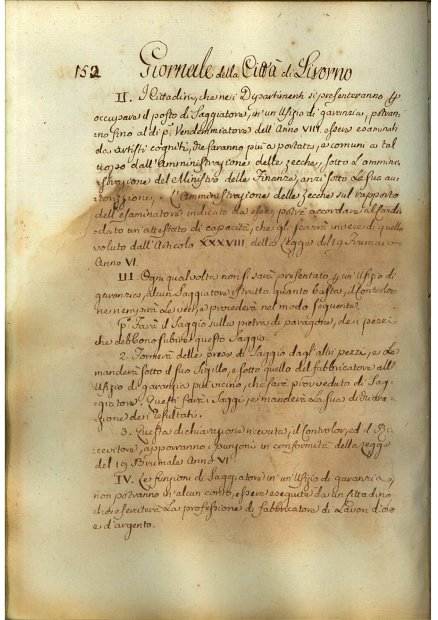 152 Giornale della Città di Livorno
II. I Cittadini, che nei Dipartimenti si presenteranno p
occupare il posto di Saggiatore, in un' Ufizio di garanzia, potran
no fino al dì p.° Vendemmiatore dell' Anno VIII. essere esaminati
da artisti cogniti, che saranno più a portata, e comuni a tal
uopo dall' Amministrazione delle zecche, sotto l' ammini
strazione del Ministro delle Finanze, anzi sotto la sua au
torizzazione, L' Amministrazione delle zecche sul rapporto
dell' esaminatore indicato da esse, potrà accordare al Candi
dato un' attestato di capacità, che gli servirà invece di quello
voluto dall' Articolo XXXVIII della Legge del 19 Brumaio
Anno VI.
III. Ogni qual volta non si sarà presentato p un' Ufizio di
garanzia, alcun Saggiatore istrutto quanto basta, il Controlor
ne riempirà le veci, e procederà nel modo seguente.
p.° Farà il Saggio sulla pietra di paragone, dei pezzi
che debbono subire questo Saggio.
2. Fornerà delle prese di Saggio dagl' altri pezzi, e le
manderà sotto il suo Sigillo, e sotto quello del fabbricatore all'
Ufizio di garanzia più vicino, che sarà provveduto di Sag
giatore. Questi farà i Saggi, e manderà la sua dichiara
zione dei resultati.
3. Questa dichiarazione ricevuta, il Controlor, ed il Ri
cevitore, apporranno i punzoni in conformità della Legge
del 19 Brumale Anno VI
IV. Le funzioni di Saggiatore in un' Ufizio di garanzia
non potranno in alcun conto, essere eseguite da un Cittadino
che eserciterà la professione di fabbricatore di Lavori d'oro
e d'argento.